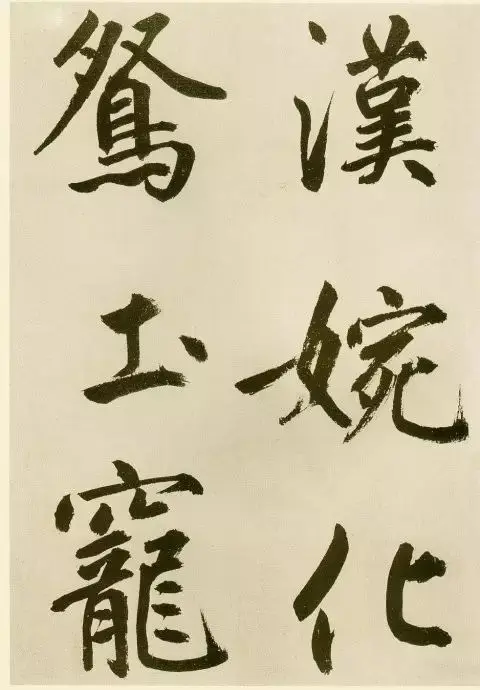 漢婉化
鴛土寵